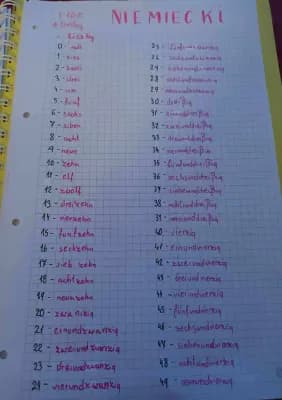 NIEMIECKI
Liczby
0 - null
1 - eins
2 - zwei
3 - drei
4 - vier
5 - fünf
6 - sechs
7 - sieben
8 - acht
9 - neun
10 - zehn
11 - elf
12 - zwölf
13 - dreizehn
14 - vierzehn
15 - fünfzehn
16 - sechzehn
17 - siebzehn
18 - achtzehn
19 - neunzehn
20 - zwanzig
21 - einundzwanzig
22 - zweiundzwanzig
23 - dreiundzwanzig
24 - vierundzwanzig
25 - fünfundzwanzig
26 - sechsundzwanzig
27 - siebenundzwanzig
28 - achtundzwanzig
29 - neunundzwanzig
30 - dreißig
31 - einunddreißig
32 - zweiunddreißig
33 - dreiunddreißig
34 - vierunddreißig
35 - fünfunddreißig
36 - sechsunddreißig
37 - siebenunddreißig
38 - achtunddreißig
39 - neununddreißig
40 - vierzig
41 - einundvierzig
42 - zweiundvierzig
43 - dreiundvierzig
44 - vierundvierzig
45 - fünfundvierzig
46 - sechsundvierzig
47 - siebenundvierzig
48 - achtundvierzig
49 - neunundvierzig